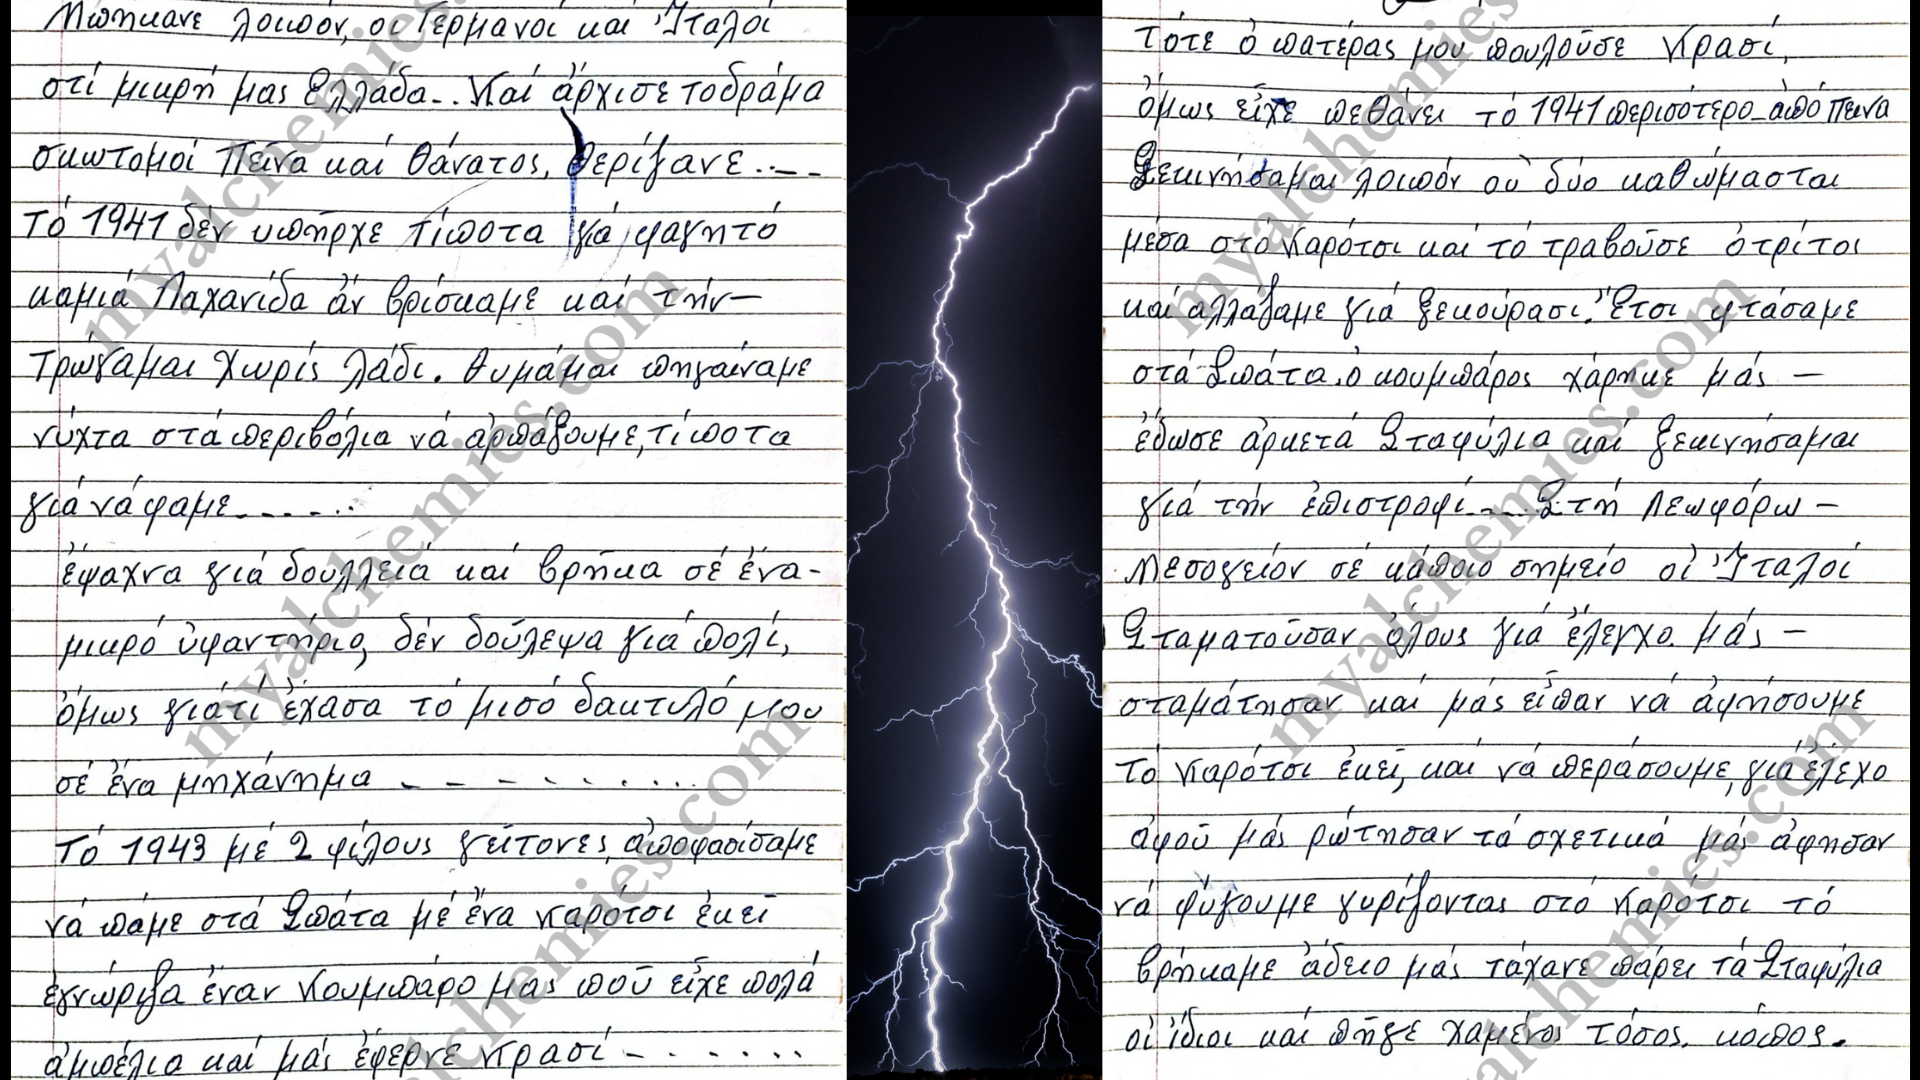 Μπήκανε λοιπόν, οι Γερμανοί και Ἰταλοί
στί μικρή μας Ελλάδα.. Καί ἀρχισε το δράμα
σκωτομοί Πεῖνα και θάνατος, θερίζανε...--
Τό 1941 δέν υπῆρχε τίποτα γιά φαγητό
καμιά Λαχανίδα ἄν βρίσκαμε καί τήν-
Τρώγαμαι χωρίς λάδι. θυμάμαι πηγαίναμε
νύχτα στά περιβόλια νά αρπάξουμε, τίποτα
γιά νά φαμε......
ἐψαχνα γιά δουλλειά καί βρῆκα σέ ἕνα-
μικρό ὑφαντήριο, δέν δούλεψα γιά πολί,
ὅμως γιάτί ἐχασα τό μισό δακτυλό μου
σέ ἕνα μηχάνημα - - - - . . . . . .
Τό 1943 μέ 2 φίλους γείτονες, αποφασίσαμε
νά πάμε στά Σπάτα μέ ἕνα καρότσι ἐκεῖ
ἐγνώριζα ἕναν Κουμπάρο μας ποῦ εἶχε πολά
ἀμπέλια και μάς ἐφερνε κρασί - . - . . . .
Τότε ὁ πατέρας μου πουλοῦσε Κρασί,
ὅμως εἶχε πεθάνει τό 1941 περισότερο-από Πεινα
Ξεκινήσαμαι λοιπόν οὑ δύο καθώμασται
μέσα στό Καρότσι και τό τραβοῦσε ὁ τρίτοι
καί αλλάζαμε γιά ξεκούρασι. Ἔτσι φτάσαμε
στά Σπάτα, ὁ κουμπάρος χάρηκε μάς -
ἐδωσε ἀρκετά Σταφύλια καί ξεκινήσαμαι
γιά τήν ἐπιστροφί.... Στή Λεωφόρω -
Μεσογείον σέ κάποιο σημείο οἱ Ἰταλοί
Σταματοῦσαν ὁλους γιά ἐλεγχο. μάς -
σταμάτησαν και μάς εἶπαν νά ἀφήσουμε
τό Καρότσι ἐκεῖ, και νά περάσουμε, γιά ἐλεχο
αφοῦ μάς ρώτησαν τά σχετικά μάς ἀφησαν
νά φύγουμε γυρίζοντας στό Καρότσι τό
βρήκαμε ἀδειο μάς τάχανε πάρει τά Σταφύλια
οἱ ἰδιοι και πῆγε χαμένος τόσος. κόπος.
myalchemies.com
myalchemies.com
myalchemies.com
myalchemies.com
myalchemies.com
myalchemies.com